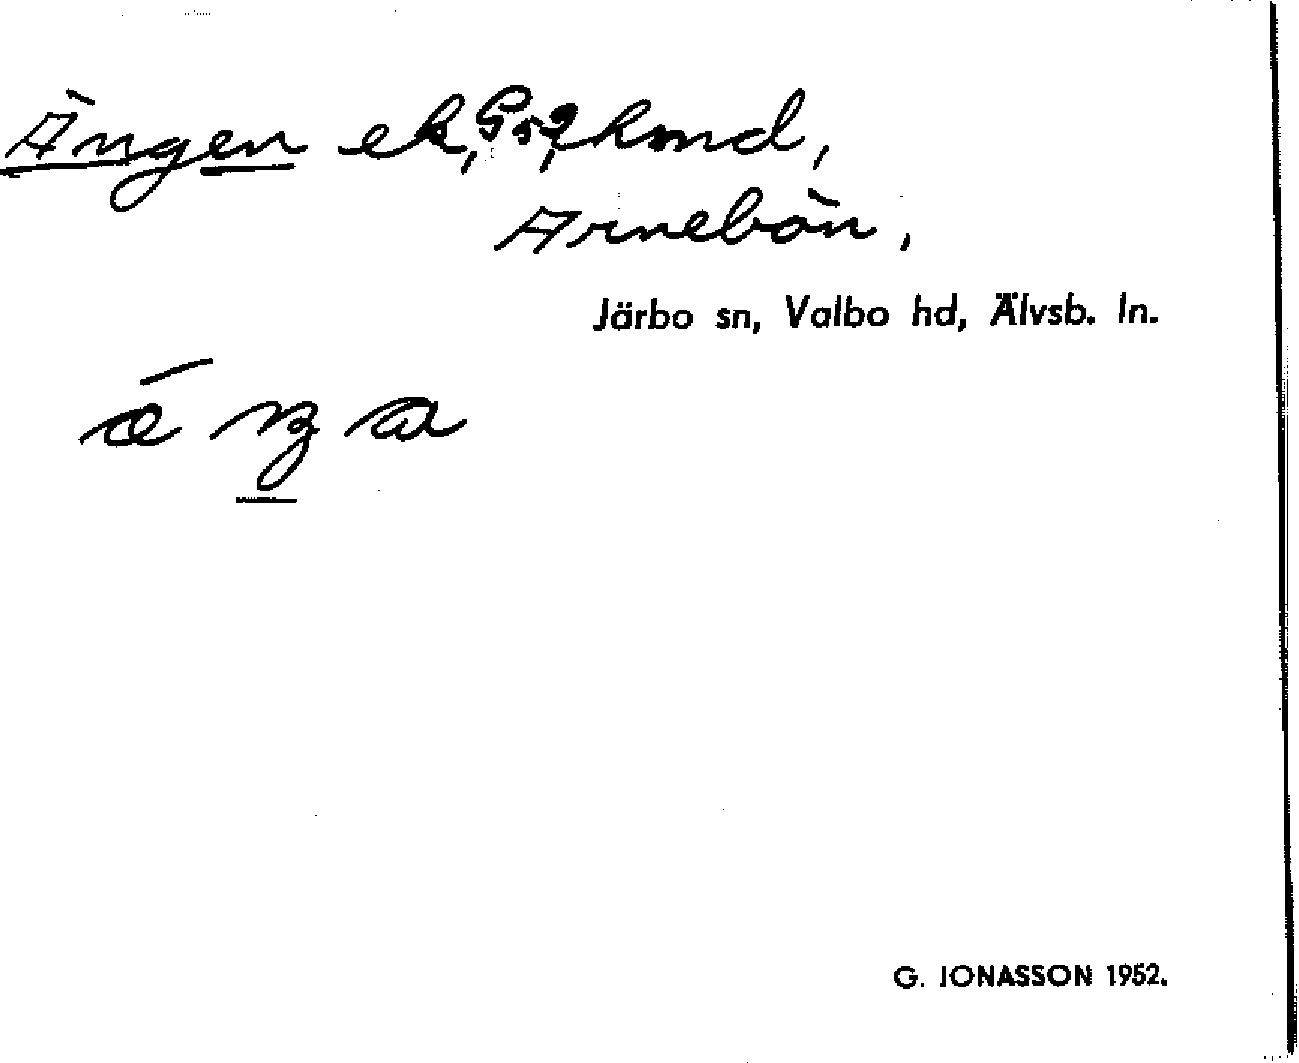 Ängen ek, kmd,
Arnebön,
Järbo sn, Valbo hd, Älvsb. ln.
G. JONASSON 1952.